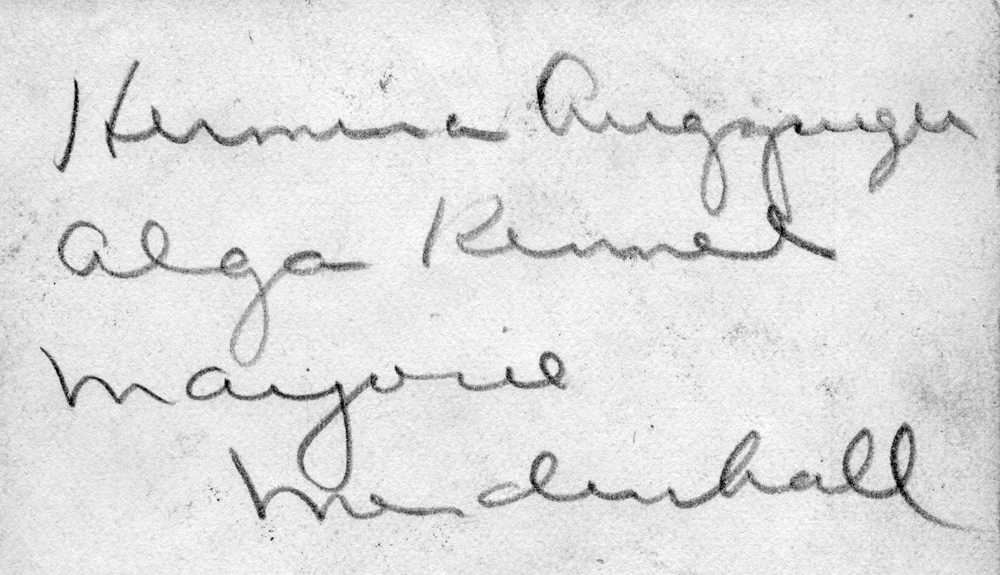 Hermina Augspuger
Alga Kennel
Marjorie
Mendenhall